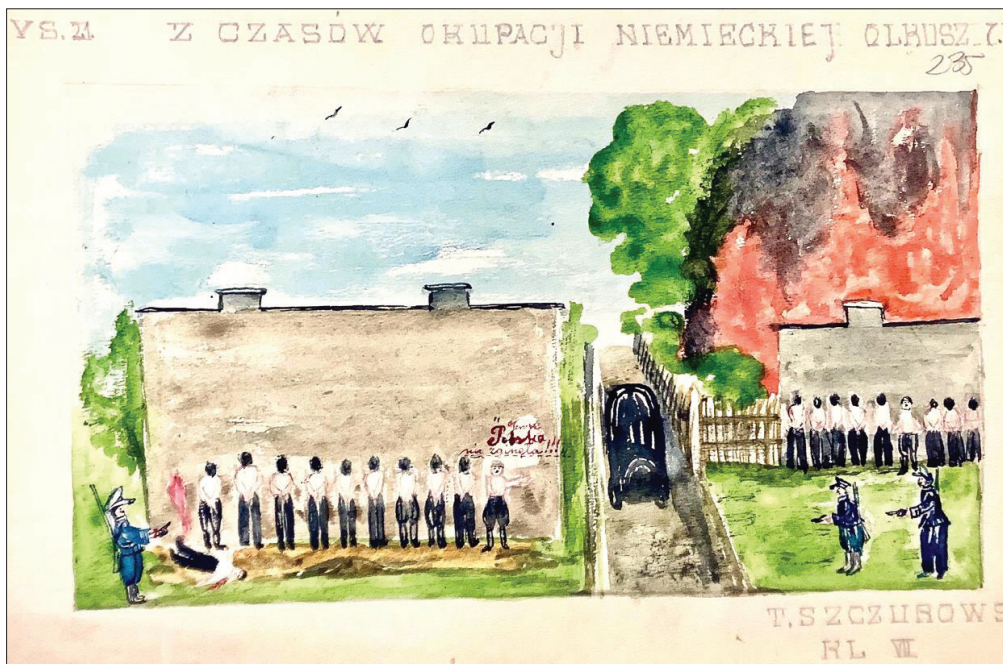 YS.21 Z CZASÓW OKUPACJI NIEMIECKIEJ OLKUSZ.
235
Polska
nie zginęła!!!
T.SZCZUROWS
KL VII